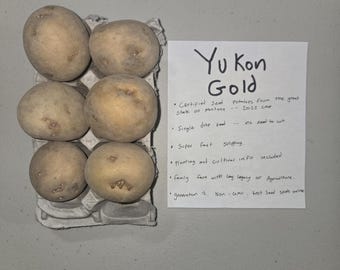 Yukon
Gold
• Certified Seed potatoes from the great
state of Montana -- Since
• Single drop seed -- no need to cut
• Super fast shipping
• Planting and cultivar info included
• family farm with long legacy in Agriculture.
• generation 2. Non-GMO. best seed spuds online